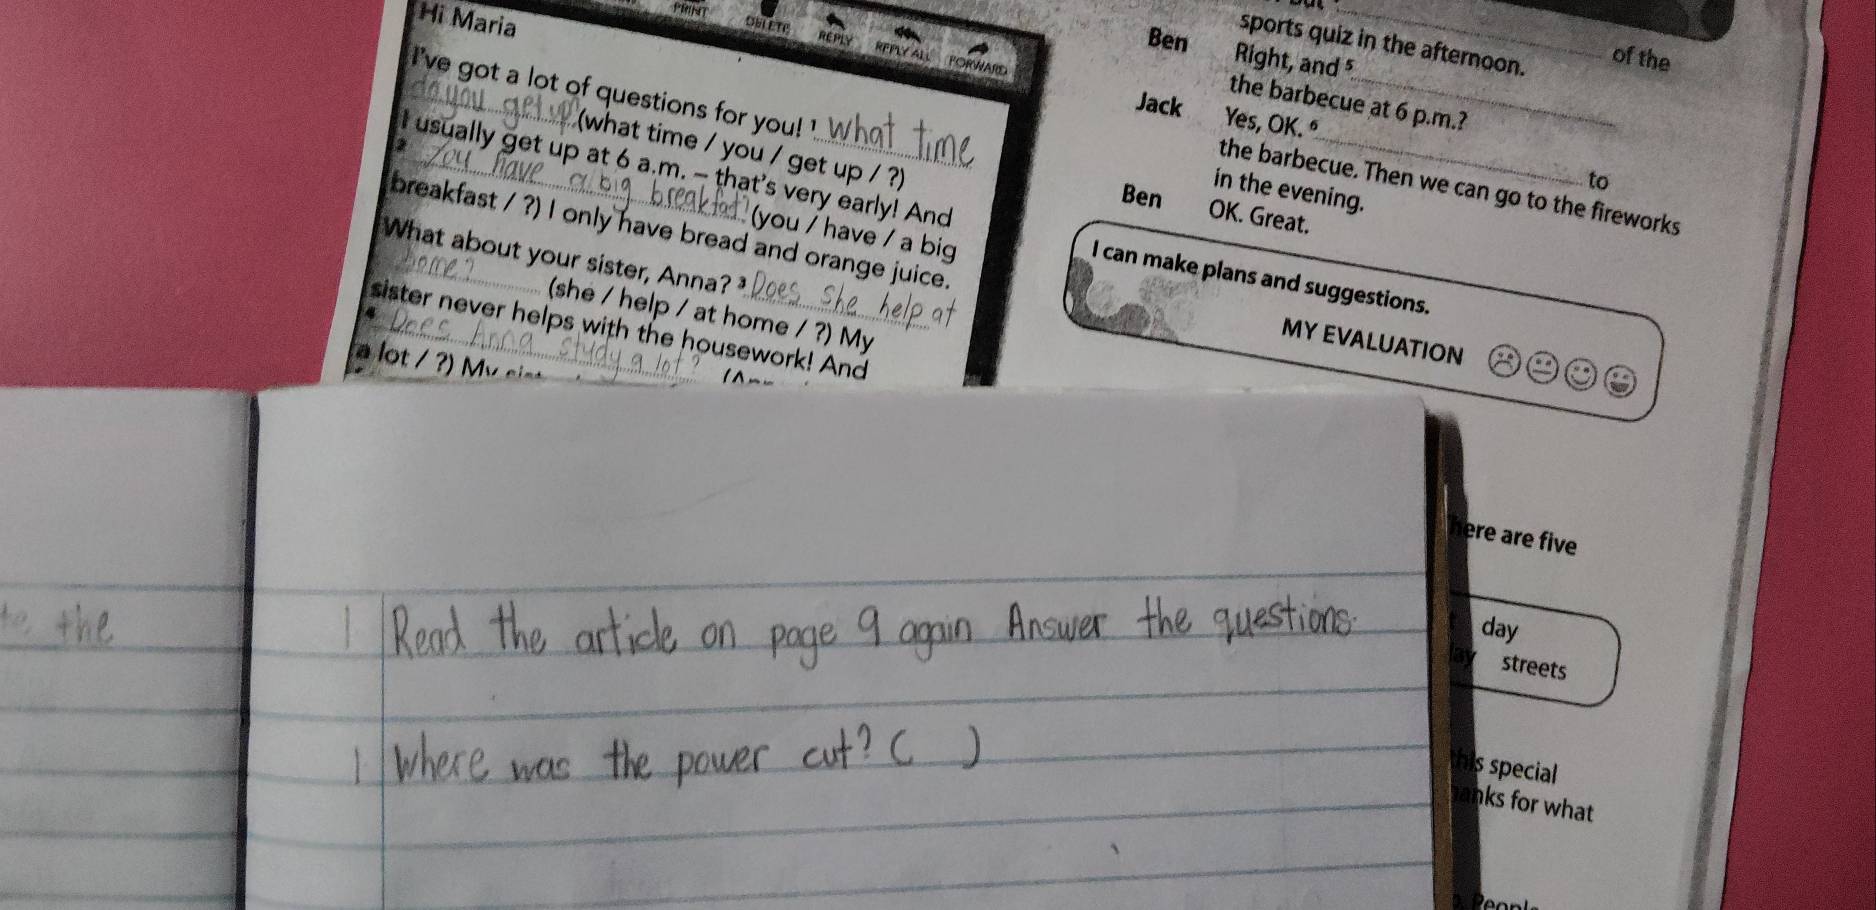 Hi Maria
PRINT DELETE REPLY REPLY ALL FORWARD
I've got a lot of questions for you! 1 What time
do you get up (what time / you / get up / ?)
I usually get up at 6 a.m. – that's very early! And
2 You have a big breakfast? (you / have / a big
breakfast / ?) I only have bread and orange juice.
What about your sister, Anna? 3 Does she help at
home? (she / help / at home / ?) My
sister never helps with the housework! And
4 Does Anna study a lot?
a lot / ?) My
of the
sports quiz in the afternoon.
Ben Right, and 5
the barbecue at 6 p.m.?
Jack Yes, OK. 6 to
the barbecue. Then we can go to the fireworks
in the evening.
Ben OK. Great.
I can make plans and suggestions.
MY EVALUATION
here are five
day
streets
special
for what
te the
1 Read the article on page 9 again Answer the questions.
1 Where was the power cut? ( )